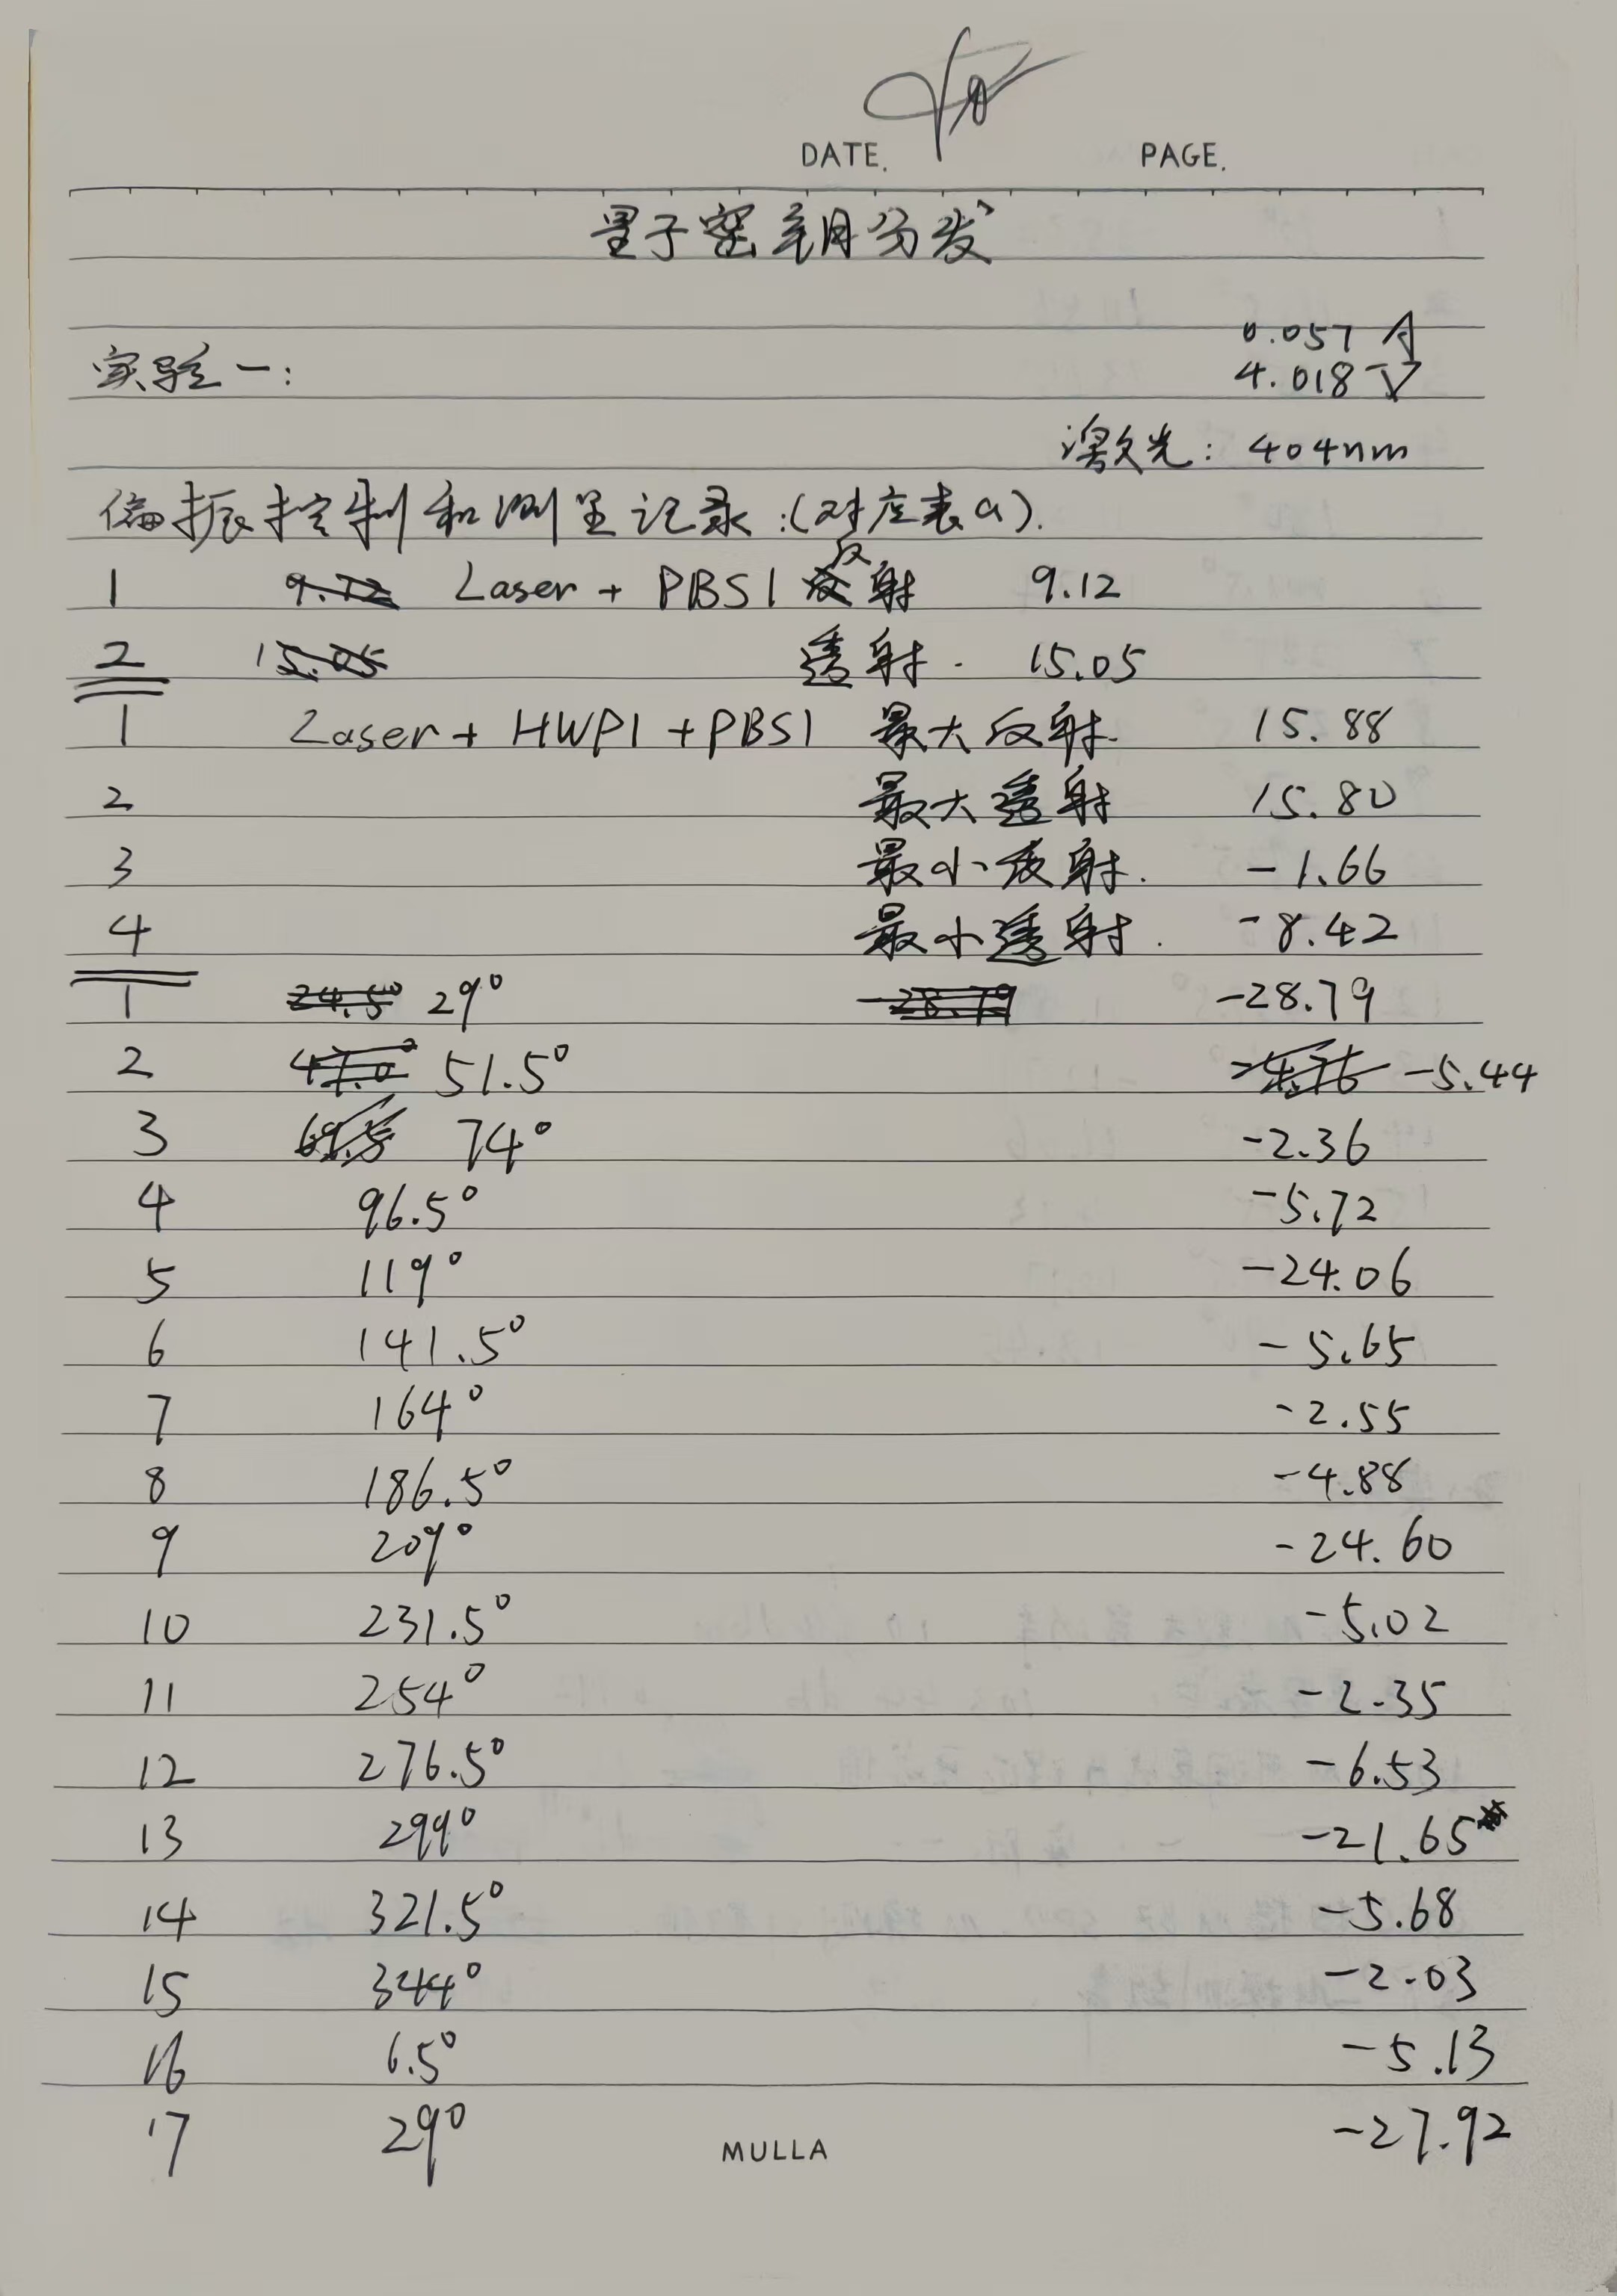 DATE. PAGE.
量子密钥分发
0.057 A
实验一:
4.018 V
激光: 404nm
偏振控制和测量记录:(对应表a).
1 9.12 Laser + PBS1 反射 9.12
2 15.05 透射. 15.05
1 Laser + HWP1 + PBS1 最大反射. 15.88
2 最大透射 15.80
3 最小反射. -1.66
4 最小透射. -8.42
1 24.5° 29° -28.79 -28.79
2 47.0° 51.5° -4.76 -5.44
3 69.5 74° -2.36
4 96.5° -5.72
5 119° -24.06
6 141.5° -5.65
7 164° -2.55
8 186.5° -4.88
9 209° -24.60
10 231.5° -5.02
11 254° -2.35
12 276.5° -6.53
13 299° -21.65
14 321.5° -5.68
15 344° -2.03
16 6.5° -5.13
17 29° -27.92
MULLA